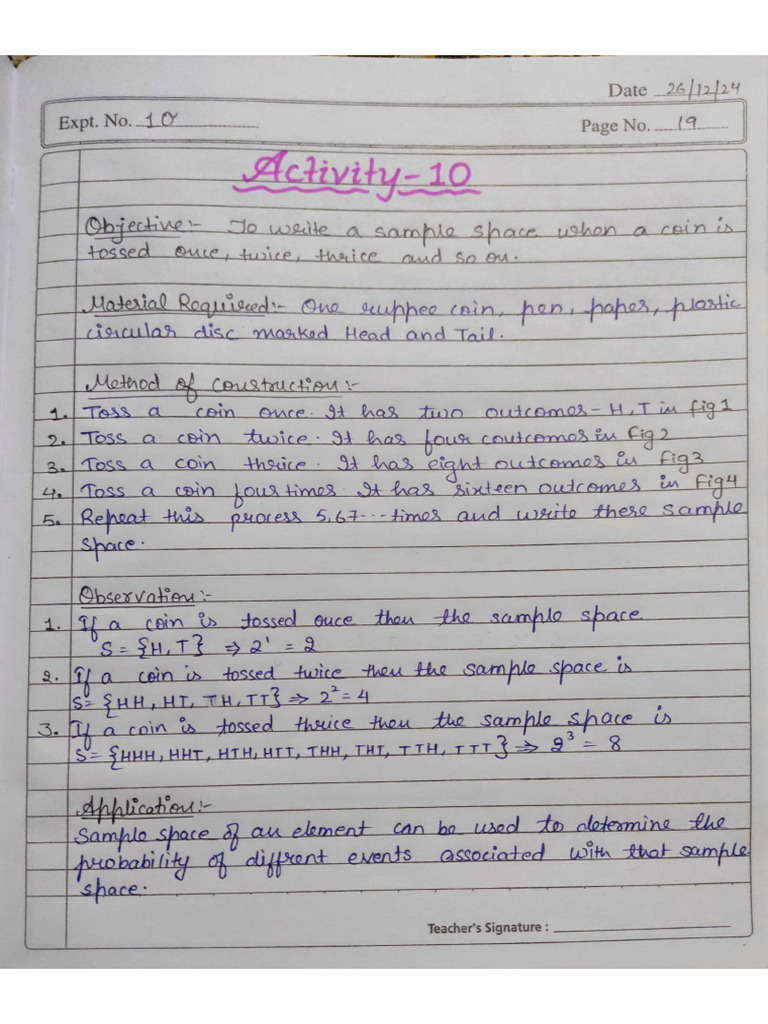 Date 26/12/24
Expt. No. 10
Page No. 19
Activity-10
Objective:- To write a sample space when a coin is
tossed once, twice, thrice and so on.
Material Required:- One ruppee coin, pen, paper, plastic
circular disc marked Head and Tail.
Method of Construction:-
1. Toss a coin once. It has two outcomes - H, T in fig 1
2. Toss a coin twice. It has four coutcomes in fig 2
3. Toss a coin thrice. It has eight outcomes in fig 3
4. Toss a coin four times. It has sixteen outcomes in fig 4
5. Repeat this process 5,67... times and write there sample
space.
Observation:-
1. If a coin is tossed once then the sample space
S = {H, T} ⇒ 2¹ = 2
2. If a coin is tossed twice then the sample space is
S= {HH, HT, TH, TT} ⇒ 2² = 4
3. If a coin is tossed thrice then the sample space is
S= {HHH, HHT, HTH, HTT, THH, THT, TTH, TTT} ⇒ 2³ = 8
Application:-
Sample space of an element can be used to determine the
probability of diffrent events associated with that sample
space.
Teacher's Signature :